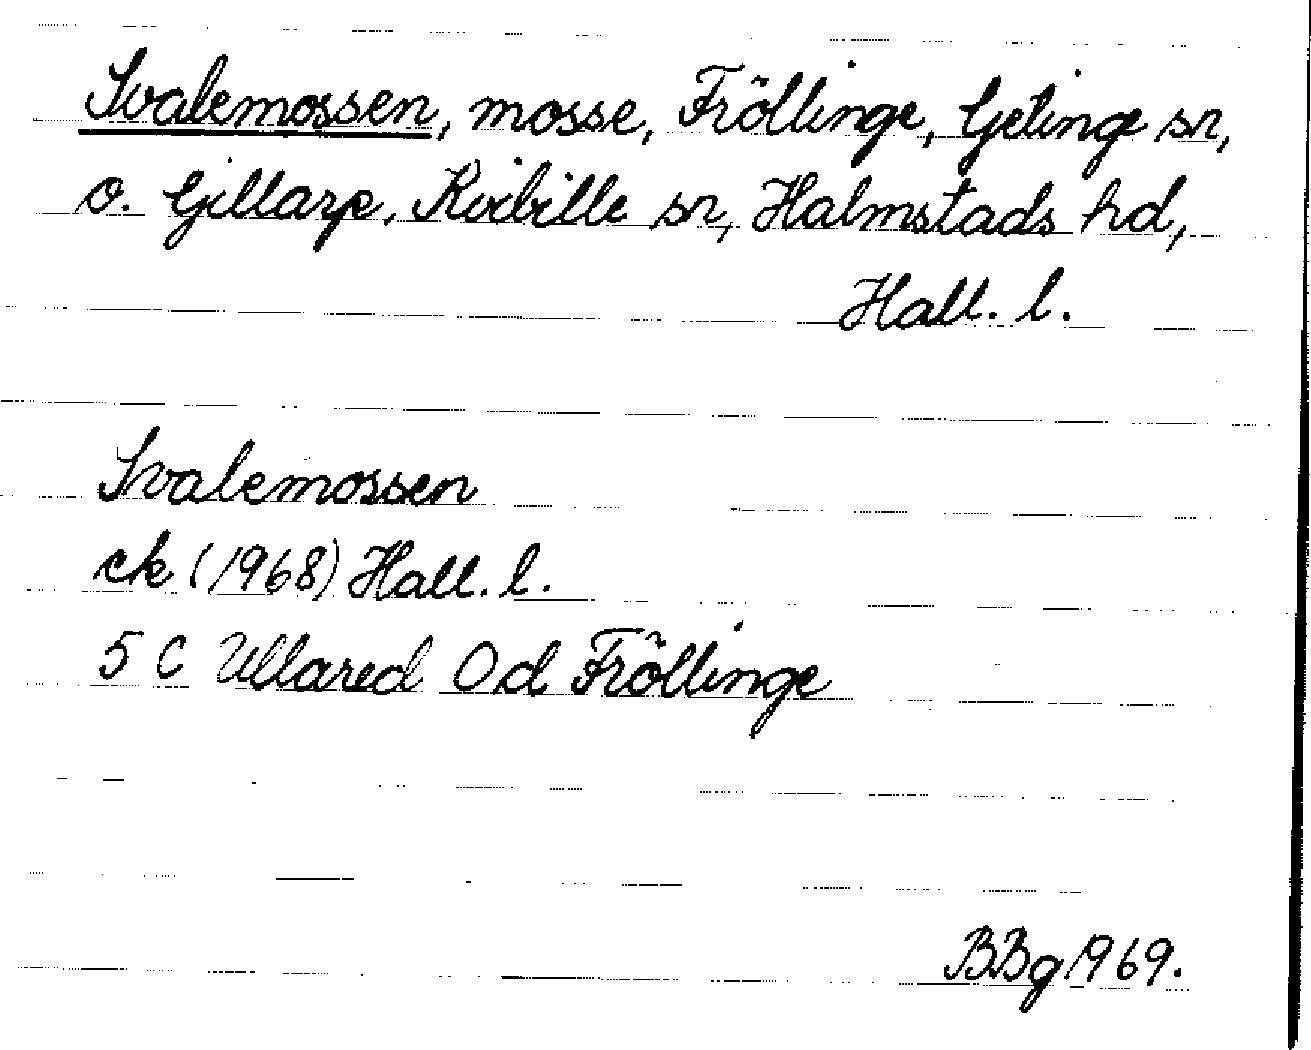 Svalemossen, mosse, Fröllinge, Getinge sn,
o. Gillarp, Kvibille sn, Halmstads hd,
Hall. l.
Svalemossen
ek (1968) Hall. l.
5 C Ullared Od Fröllinge
BBg 1969.